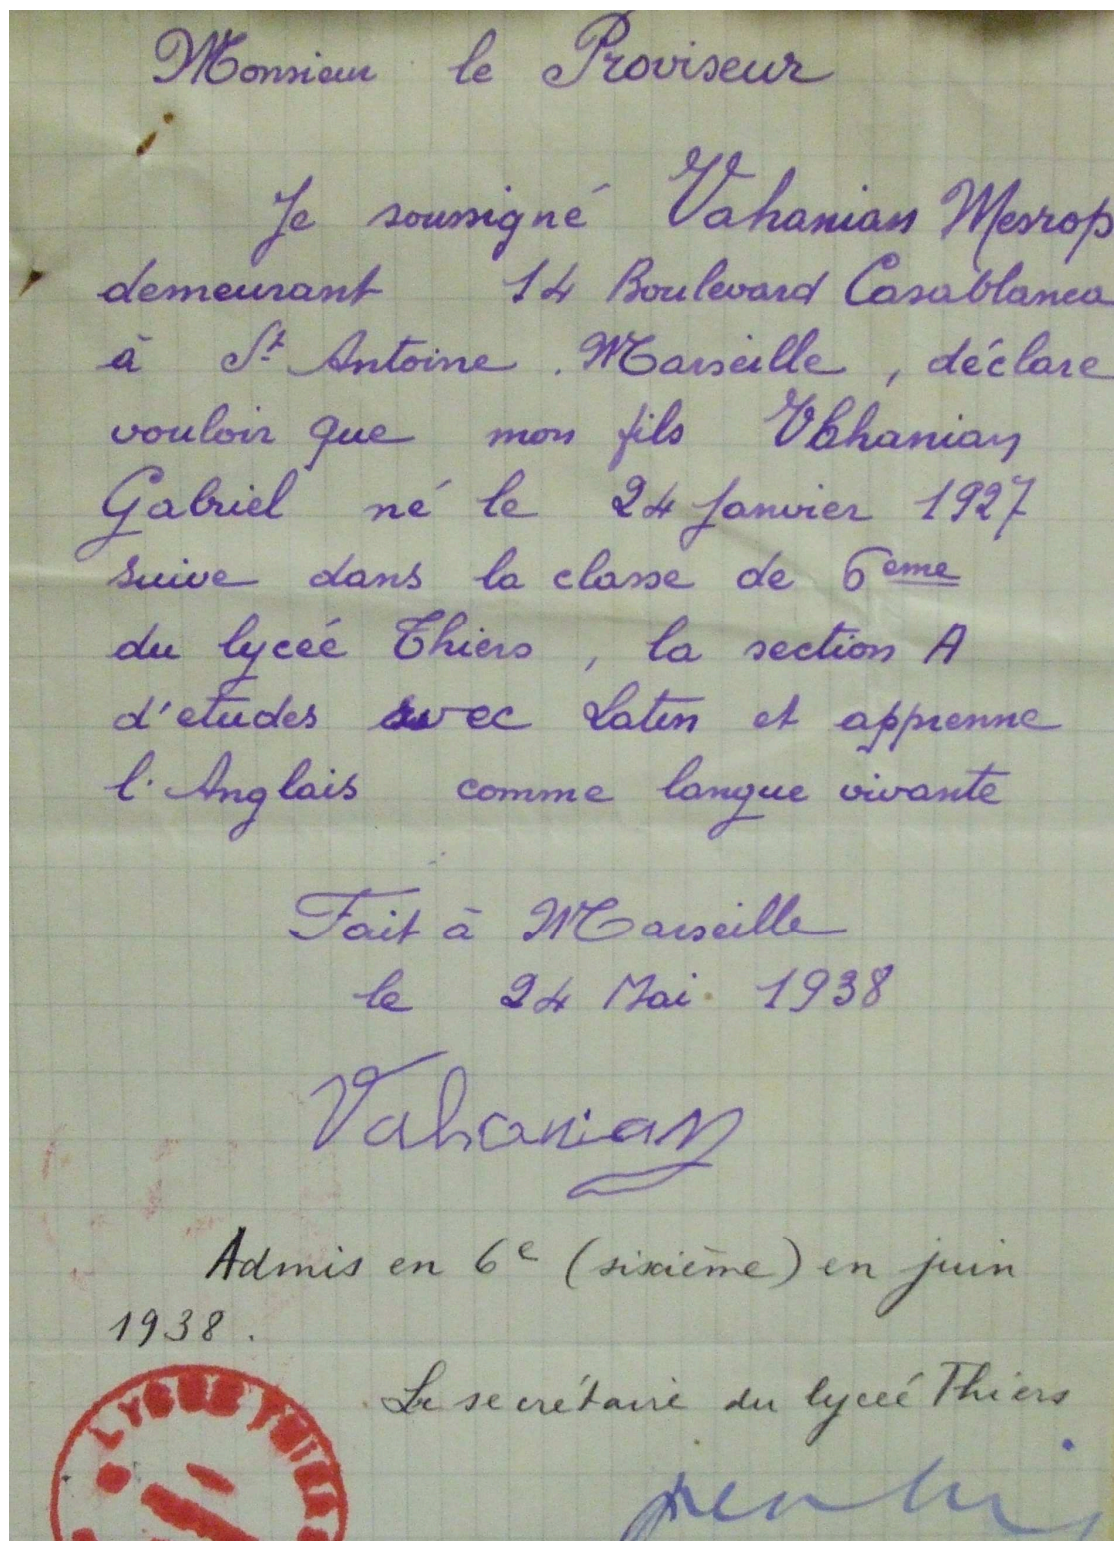 Monsieur le Proviseur
Je soussigné Vahanian Mesrop
demeurant 14 Boulevard Casablanca
à St Antoine . Marseille , déclare
vouloir que mon fils Vahanian
Gabriel né le 24 Janvier 1927
suive dans la classe de 6eme
du lyceé Thiers , la section A
d'etudes avec Latin et apprenne
l'Anglais comme langue vivante
Fait à Marseille
le 24 Mai 1938
Vahanian
Admis en 6e (sixième) en juin
1938.
Le secrétaire du lyceé Thiers
LYCEE THIERS